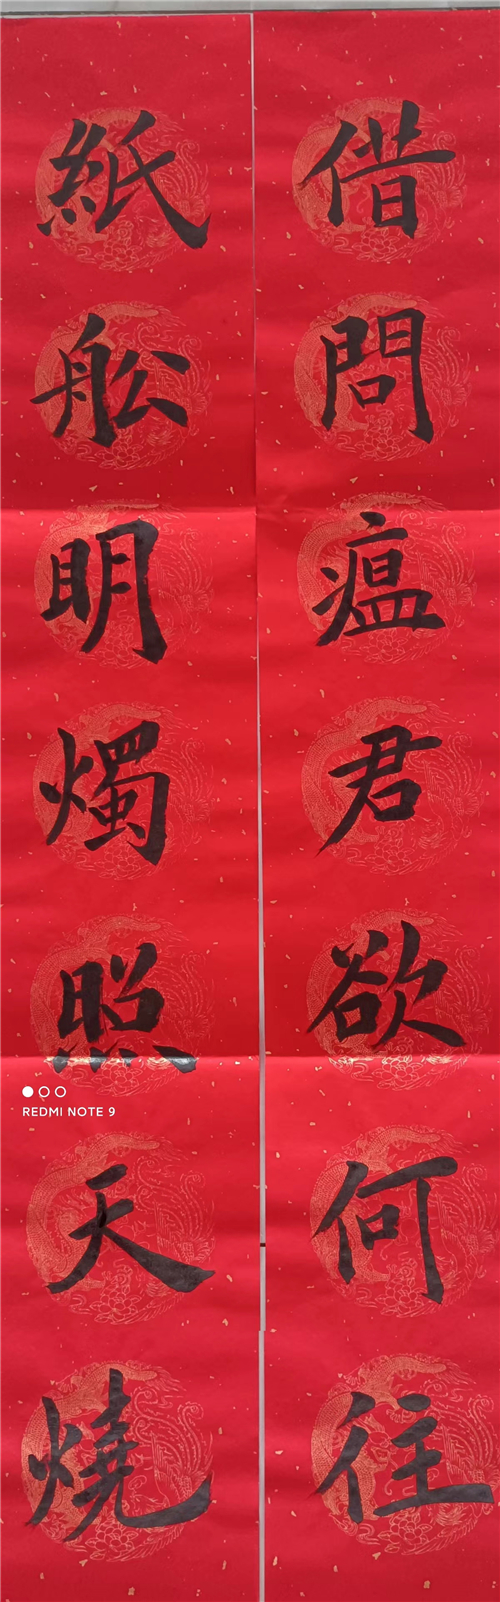 借問瘟君欲何往
紙舩明燭照天燒
REDMI NOTE 9